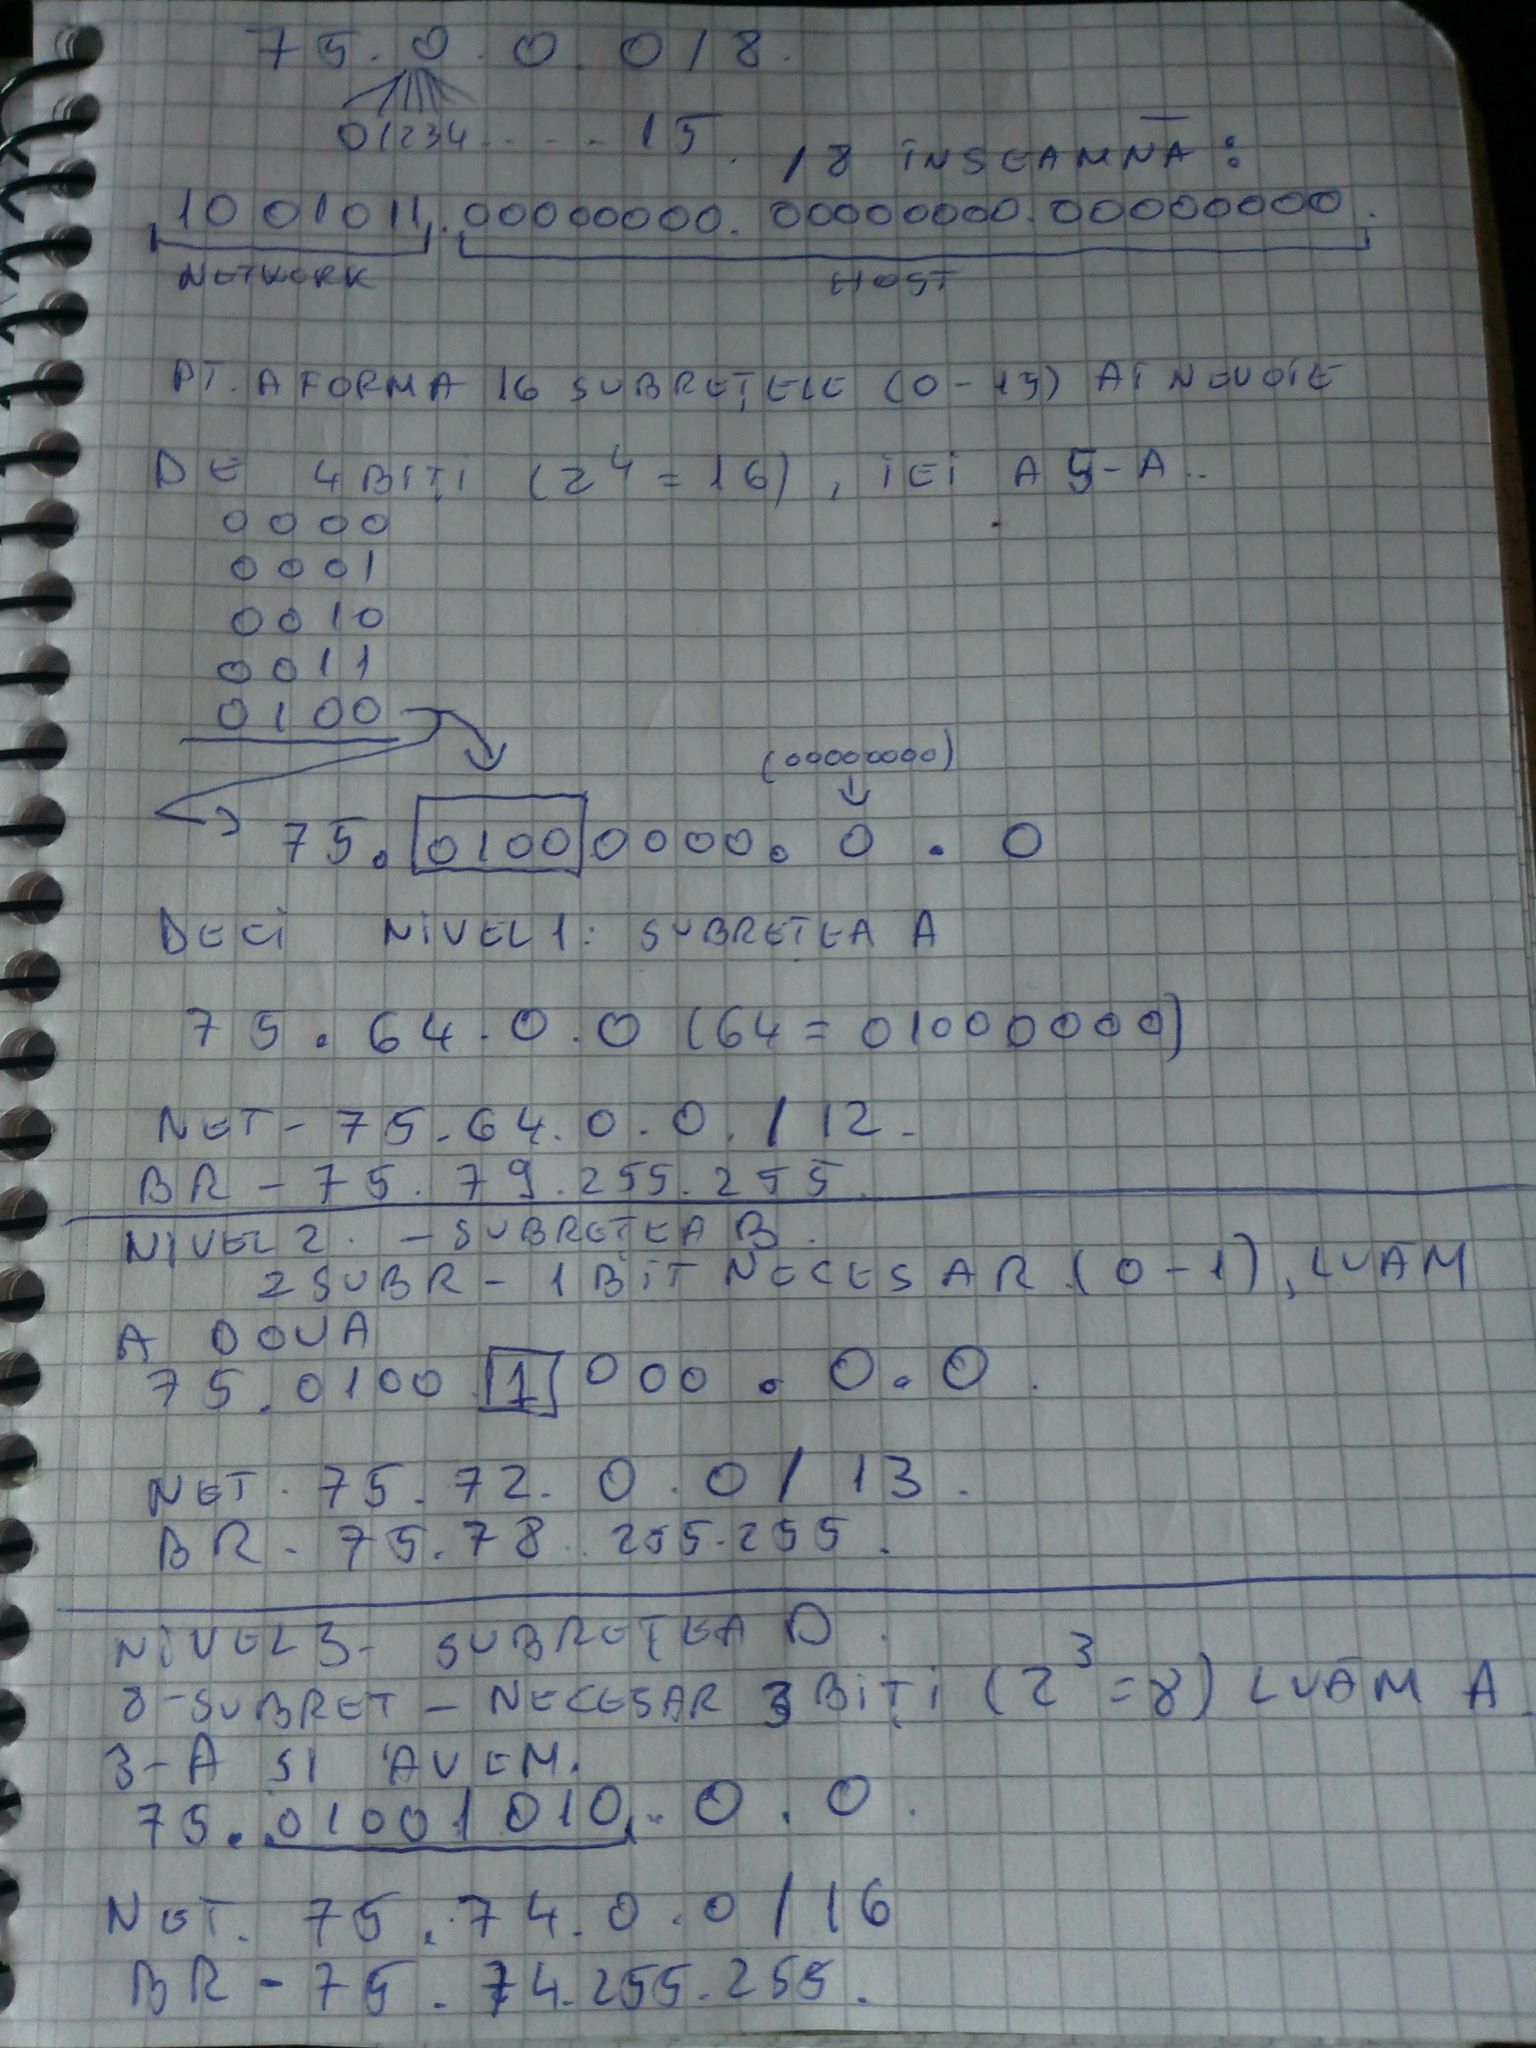 75.0.0.0/8.
01234.....15.
/8 ÎNSEAMNĂ:
1001011.00000000.00000000.00000000.
NETWORK HOST
PT. A FORMA 16 SUBREȚELE (0-15) AI NEVOIE
DE 4 BIȚI (2^4 = 16), IEI A 5-A..
0000
0001
0010
0011
0100
(00000000)
75.01000000.0.0
DECI NIVEL 1: SUBREȚEA A
75.64.0.0 (64 = 01000000)
NET - 75.64.0.0./12.
BR - 75.79.255.255.
NIVEL 2. - SUBREȚEA B.
2 SUBR - 1 BIT NECESAR (0-1), LUĂM
A DOUA
75.0100 1 000.0.0.
NET. 75.72.0.0/13.
BR - 75.78.255.255.
NIVEL 3 - SUBREȚEA D.
8-SUBRET - NECESAR 3 BIȚI (2^3 = 8) LUĂM A
3-A SI AVEM.
75.01001010.0.0.
NET. 75.74.0.0/16
BR - 75.74.255.255.